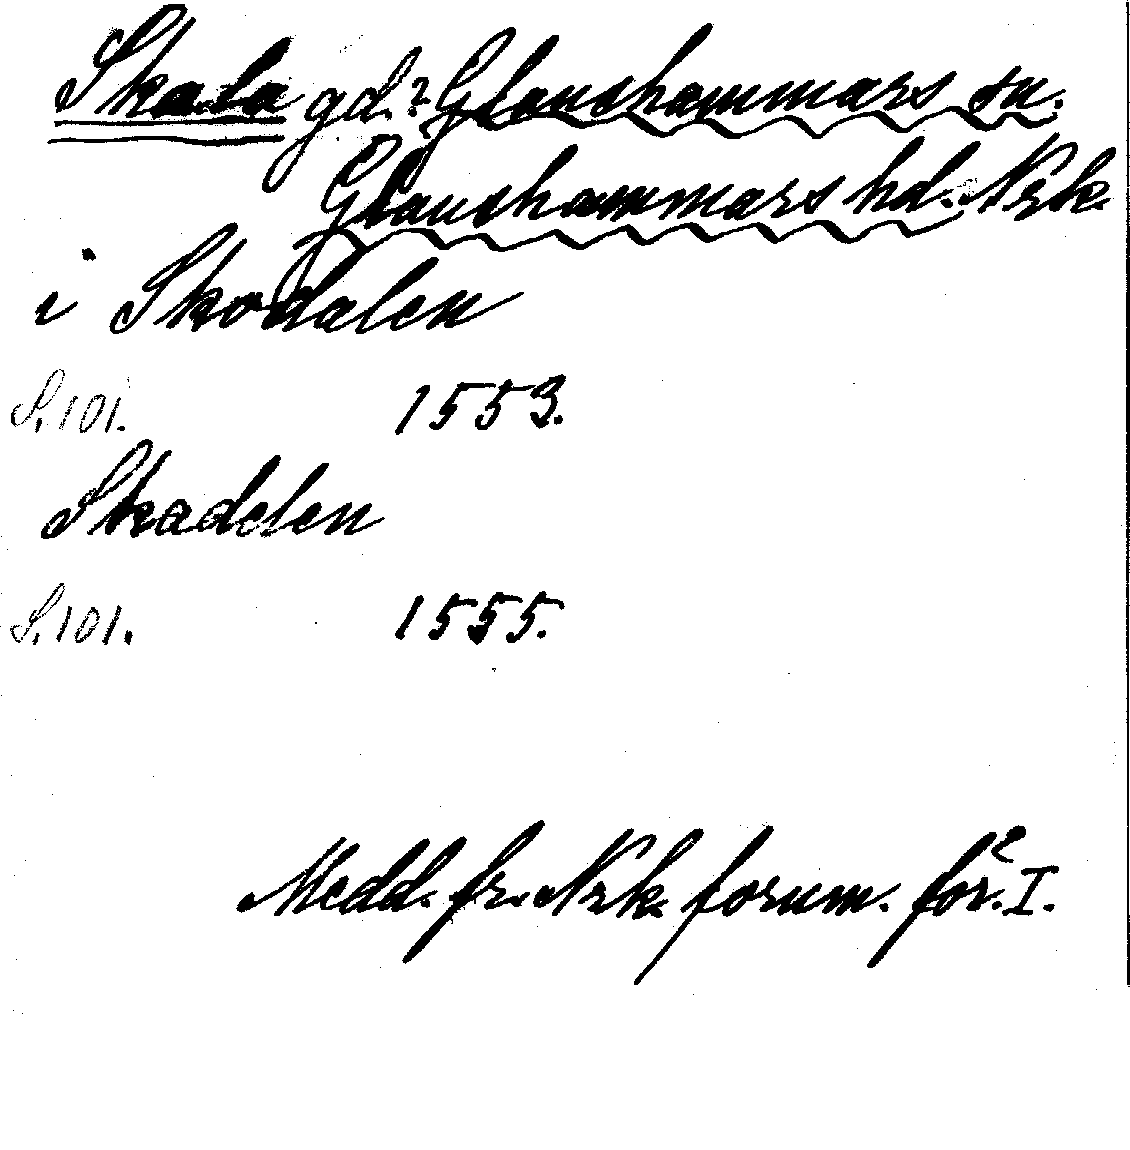 Skala gd.? Glanshammars sn.
Glanshammars hd. Nrk.
i Skodalen
S. 101. 1553.
Skadelen
S. 101. 1555.
Medd. fr. Nrk. fornm. för. I.